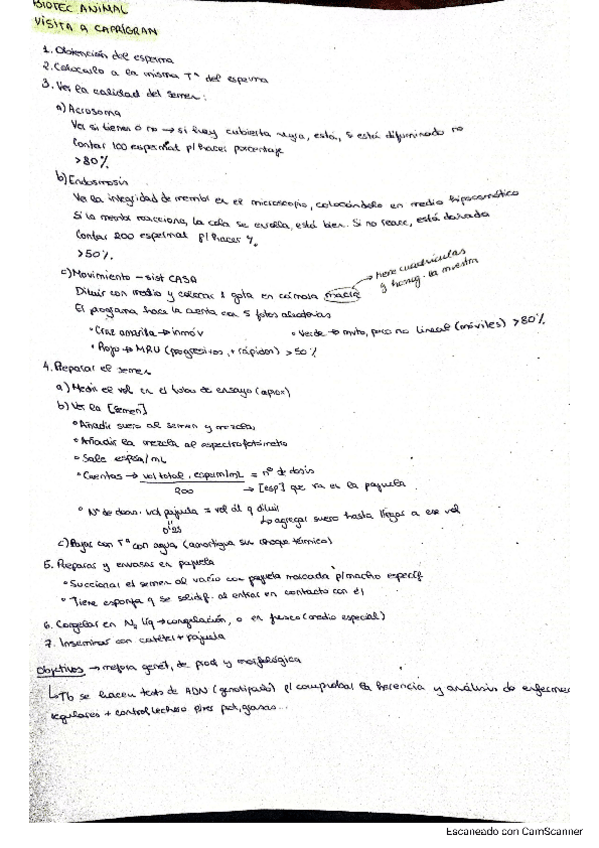 BIOTEC ANIMAL
VISITA A CAPRIGRAN
1. Obtención del esperma
2. Colocarlo a la misma Tª del esperma
3. Ver la calidad del semen:
a) Acrosoma
Ver si tienen o no → si hay cubierta negra, está, si está difuminado no
Contar 100 espermat p/hacer porcentaje
>80%
b) Endosmosis
Ver la integridad de membr en el microscopio, colocándolo en medio hiposmótico
Si la membr reacciona, la cola se enrolla, está bien. Si no reacc, está dañada
Contar 200 espermat p/hacer %
>50%
c) Movimiento - sist CASA
→ tiene cuadrículas
y homog. la muestra
Diluir con medio y colocar 1 gota en cámara
El programa hace la cuenta con 5 fotos aleatorias
• Cruz amarilla → inmóv
• Verde → mvto, pero no lineal (móviles) >80%
• Rojo → MRU (progresivos, + rápidos) >50%
4. Preparar el semen
a) Medir el vol en el tubo de ensayo (aprox)
b) Ver la [semen]
• Añadir suero al semen y mezclar
• Añadir la mezcla al espectrofotómetro
• Sale esperm/mL
• Cuentas → vol total . esperm/mL = nº de dosis
200 → [esp] que va en la pajuela
• Nº de dosis . vol pajuela = vol al q diluir
0'25 ↳ agregar suero hasta llegar a ese vol
c) Bajar con Tª con agua (amortigua su choque térmico)
5. Preparar y envasar en pajuela
• Succionar el semen al vacío con pajuela marcada p/macho específ
• Tiene esponja q se solidif. al entrar en contacto con él
6. Congelar en N₂ líq → congelación, o en fresco (medio especial)
7. Inseminar con catéter + pajuela
Objetivos → mejora genét, de prod y morfológica
↳ Tb se hacen tests de ADN (genotipado) p/ comprobar la herencia y análisis de enfermed
regulares + control lechero para prot, grasas...
Escaneado con CamScanner